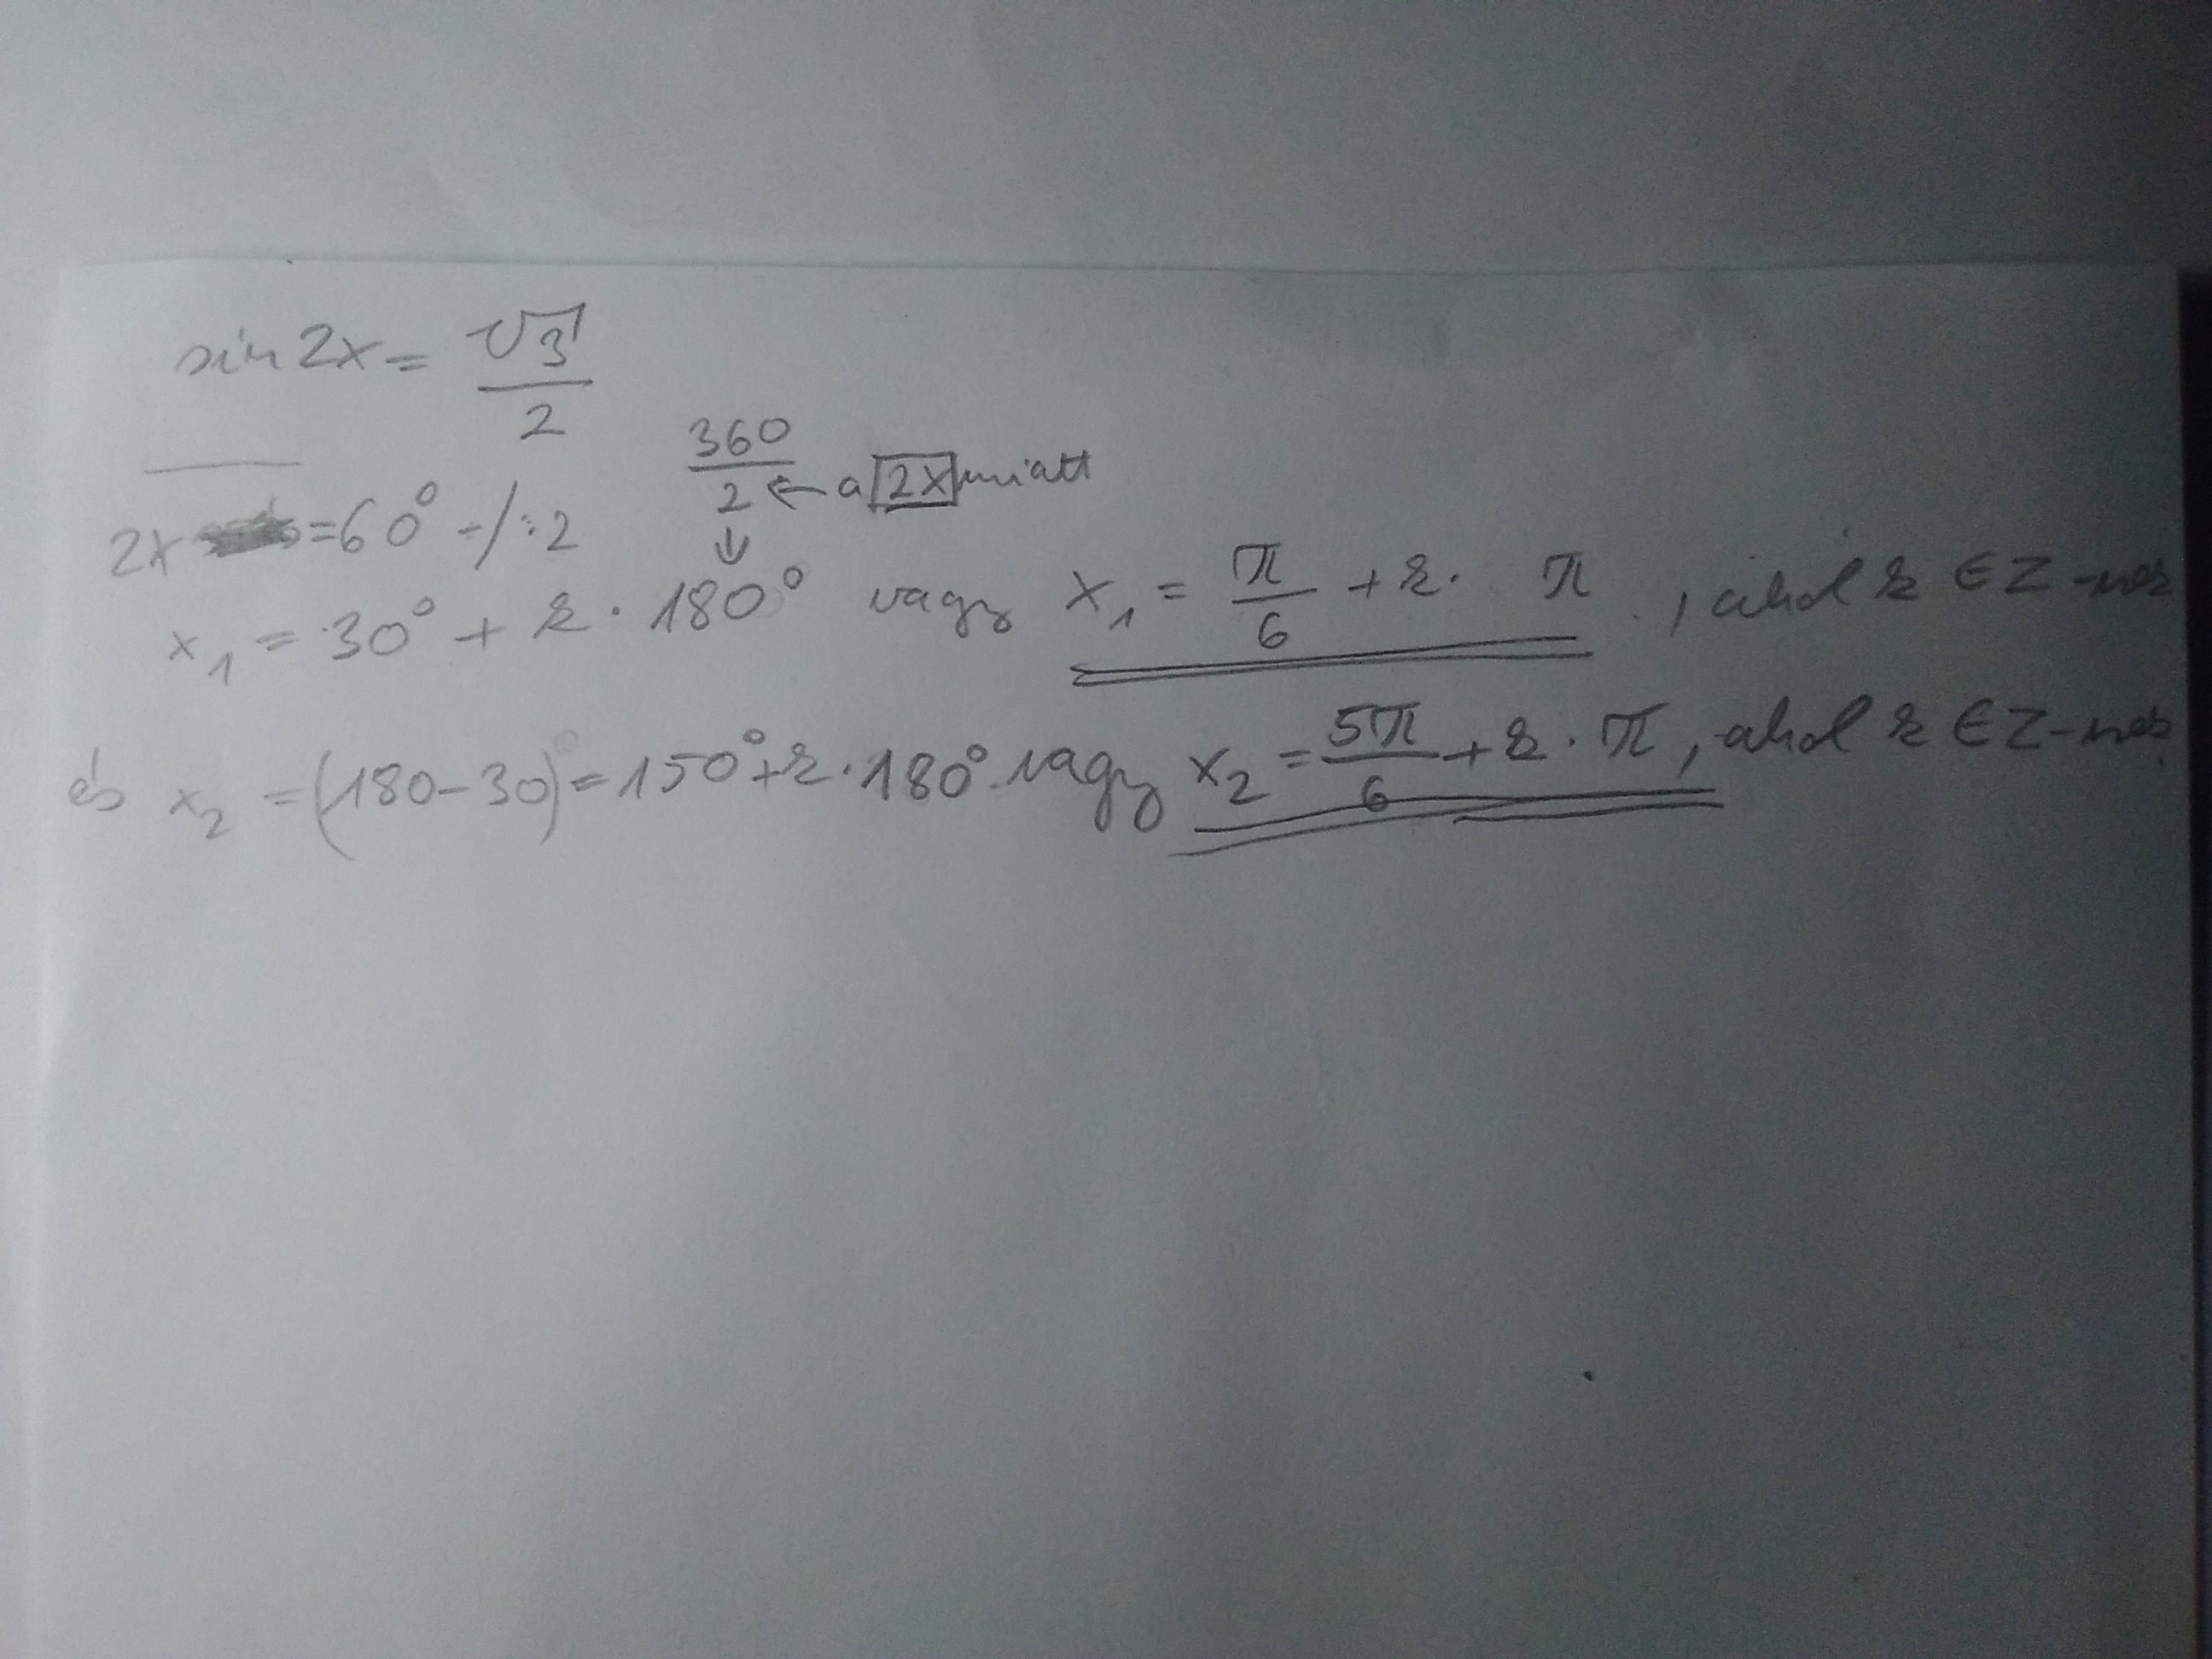 sin 2x = √3/2
360/2 ← a 2x miatt
↓
2x = 60° /:2
x₁ = 30° + k · 180° vagy x₁ = π/6 + k · π, ahol k ∈ Z-nek
és x₂ = (180-30)° = 150° + k · 180° vagy x₂ = 5π/6 + k · π, ahol k ∈ Z-nek